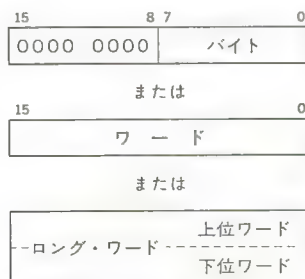 15 8 7 0
0000 0000 バイト
または
15 0
ワード
または
上位ワード
ロング・ワード
下位ワード